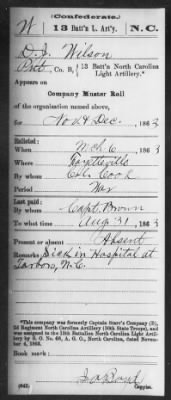 (Confederate.)
W 13 Batt'n L. Art'y. N.C.
D. J. Wilson
Pvt, Co. B, 13 Batt'n North Carolina Light Artillery.*
Appears on
Company Muster Roll
of the organization named above,
for Nov & Dec, 1863
Enlisted:
When Mch 6, 1863
Where Fayetteville
By whom Col. Cook
Period War
Last paid:
By whom Capt. Brown
To what time Aug 31, 1863
Present or absent Absent
Remarks: Sick in Hospital at
Tarboro, N.C.
*This company was formerly Captain Starr's Company (B),
2d Regiment North Carolina Artillery (36th State Troops), and was
assigned to the 13th Battalion North Carolina Light Artillery
by S. O. No. 66, A. G. O., North Carolina, dated November
4, 1863.
Book mark:
(642)
Copyist.